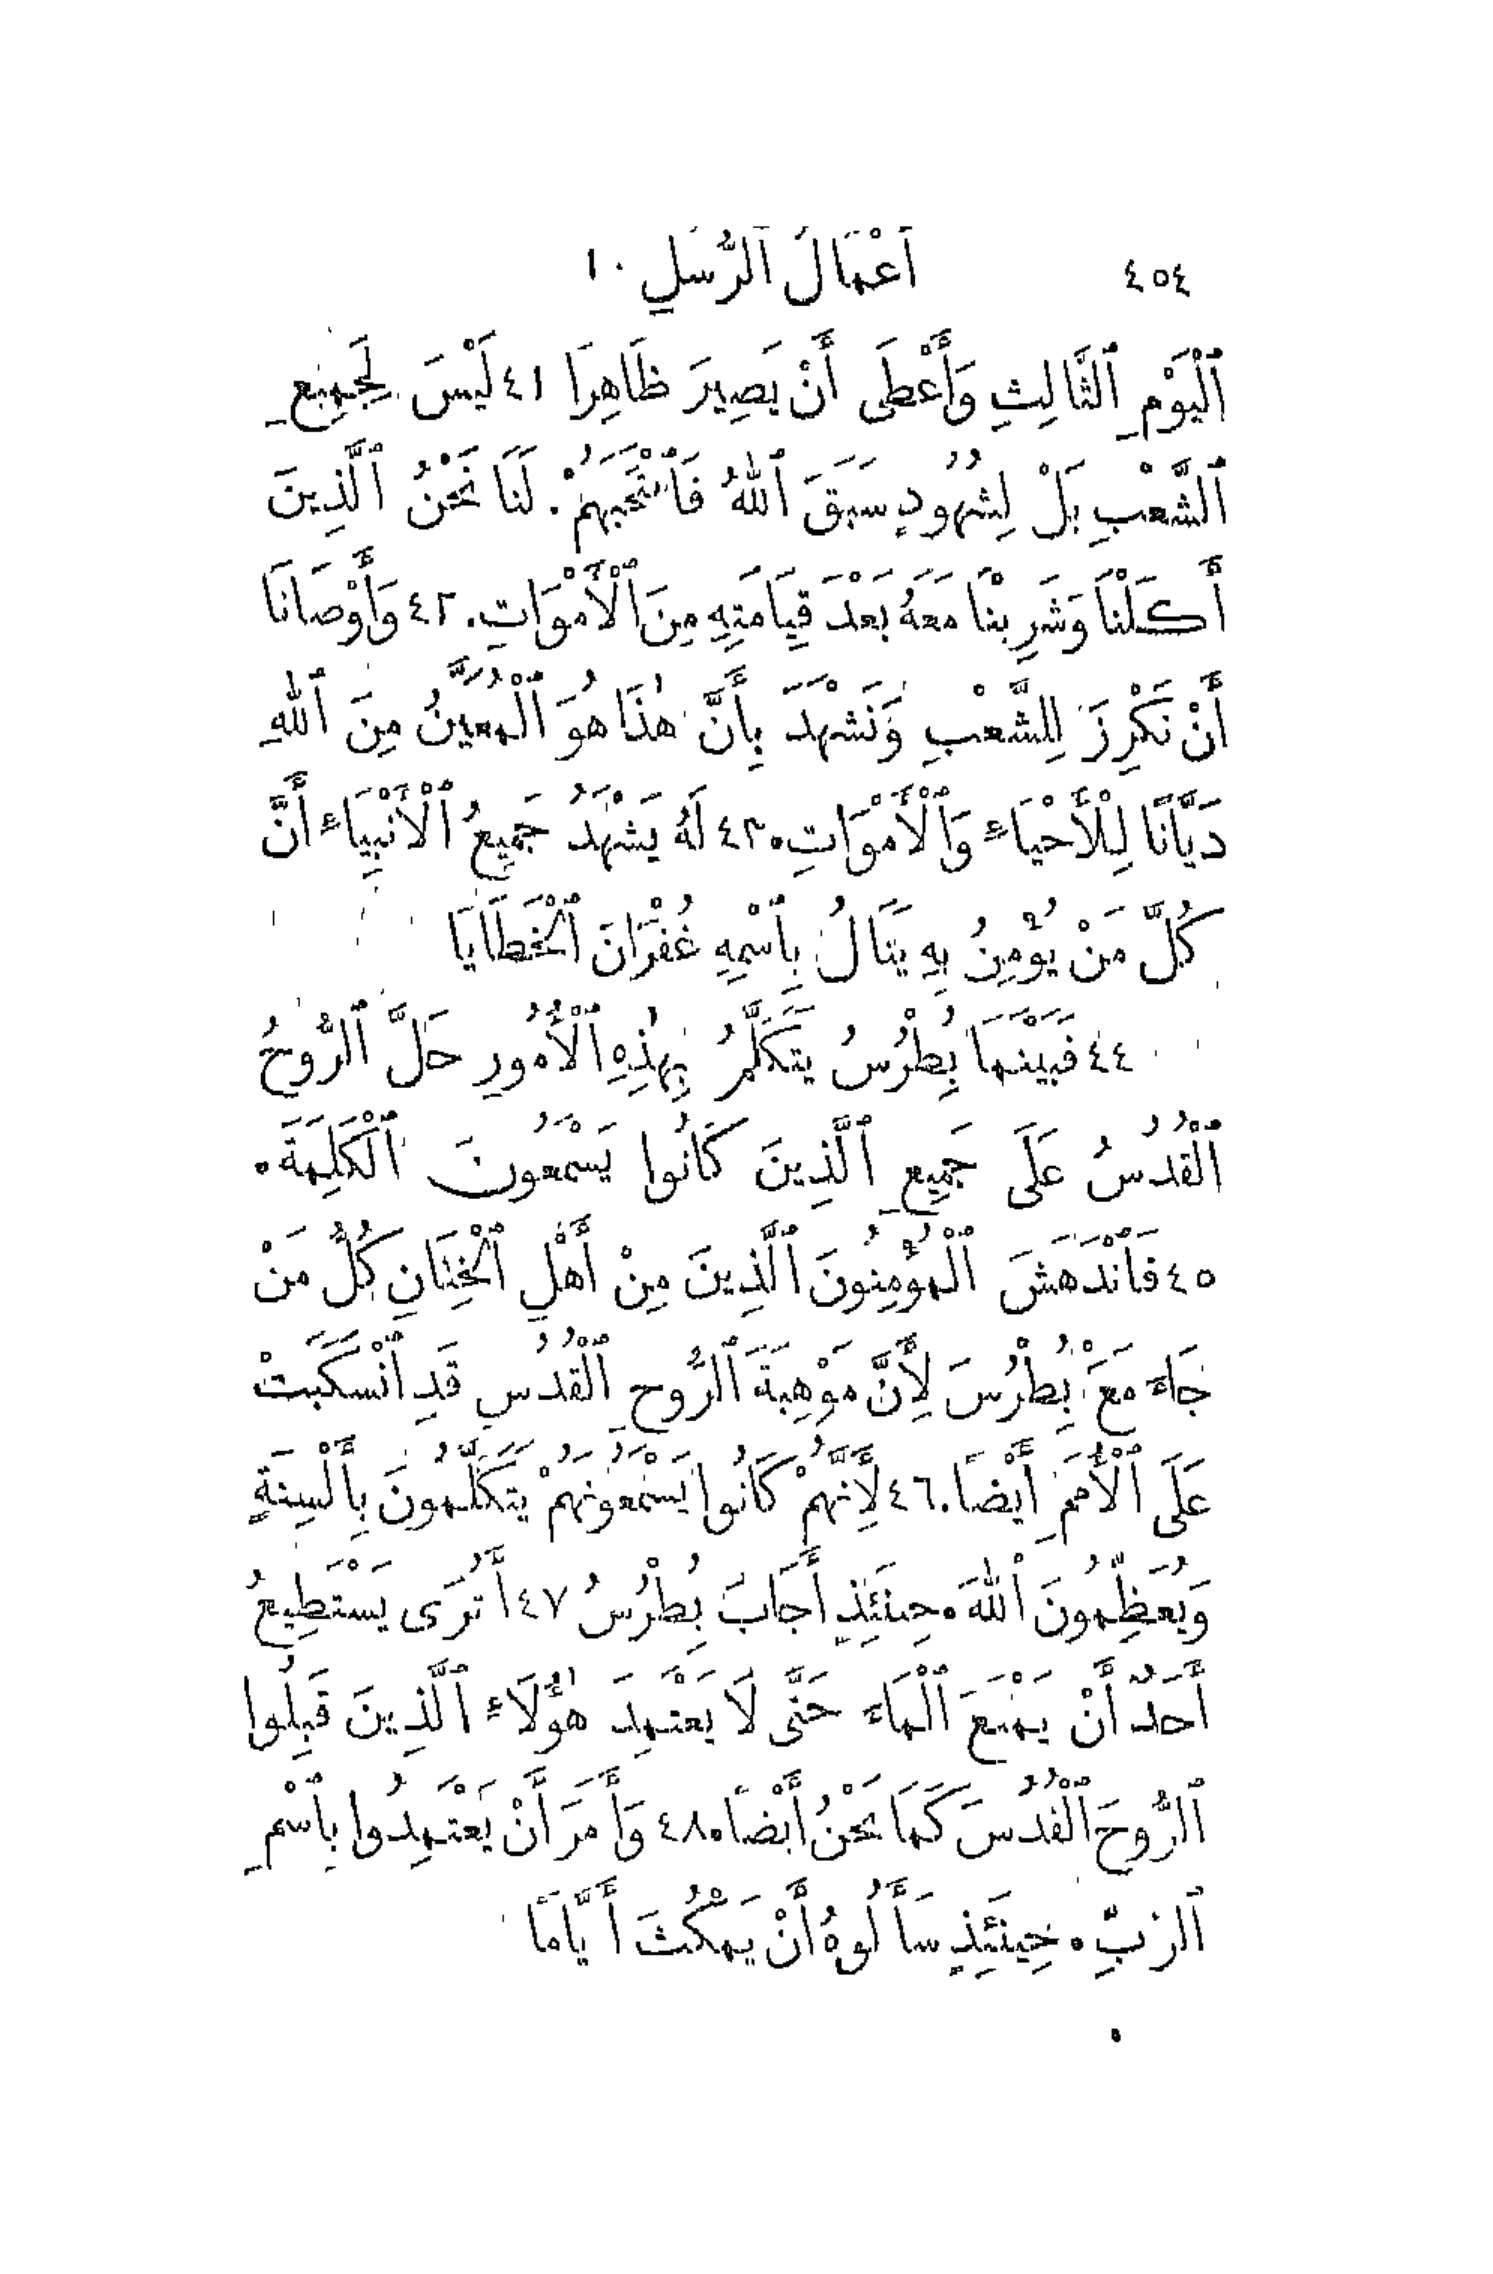 ٤٥٤ أَعْمَالُ ٱلرُّسُلِ ١٠
ٱلْيَوْمِ ٱلثَّالِثِ وَأَعْطَى أَنْ يَصِيرَ ظَاهِرًا ٤١ لَيْسَ لِجَمِيعِ
ٱلشَّعْبِ بَلْ لِشُهُودٍ سَبَقَ ٱللهُ فَٱنْتَخَبَهُمْ. لَنَا نَحْنُ ٱلَّذِينَ
أَكَلْنَا وَشَرِبْنَا مَعَهُ بَعْدَ قِيَامَتِهِ مِنَ ٱلْأَمْوَاتِ. ٤٢ وَأَوْصَانَا
أَنْ نَكْرِزَ لِلشَّعْبِ وَنَشْهَدَ بِأَنَّ هٰذَا هُوَ ٱلْمُعَيَّنُ مِنَ ٱللهِ
دَيَّانًا لِلْأَحْيَاءِ وَٱلْأَمْوَاتِ. ٤٣ لَهُ يَشْهَدُ جَمِيعُ ٱلْأَنْبِيَاءِ أَنَّ
كُلَّ مَنْ يُؤْمِنُ بِهِ يَنَالُ بِٱسْمِهِ غُفْرَانَ ٱلْخَطَايَا
٤٤ فَبَيْنَمَا بُطْرُسُ يَتَكَلَّمُ بِهٰذِهِ ٱلْأُمُورِ حَلَّ ٱلرُّوحُ
ٱلْقُدُسُ عَلَى جَمِيعِ ٱلَّذِينَ كَانُوا يَسْمَعُونَ ٱلْكَلِمَةَ.
٤٥ فَٱنْدَهَشَ ٱلْمُؤْمِنُونَ ٱلَّذِينَ مِنْ أَهْلِ ٱلْخِتَانِ كُلُّ مَنْ
جَاءَ مَعَ بُطْرُسَ لِأَنَّ مَوْهِبَةَ ٱلرُّوحِ ٱلْقُدُسِ قَدِ ٱنْسَكَبَتْ
عَلَى ٱلْأُمَمِ أَيْضًا. ٤٦ لِأَنَّهُمْ كَانُوا يَسْمَعُونَهُمْ يَتَكَلَّمُونَ بِأَلْسِنَةٍ
وَيُعَظِّمُونَ ٱللهَ. حِينَئِذٍ أَجَابَ بُطْرُسُ ٤٧ أَتُرَى يَسْتَطِيعُ
أَحَدٌ أَنْ يَمْنَعَ ٱلْمَاءَ حَتَّى لَا يَعْتَمِدَ هٰؤُلَاءِ ٱلَّذِينَ قَبِلُوا
ٱلرُّوحَ ٱلْقُدُسَ كَمَا نَحْنُ أَيْضًا. ٤٨ وَأَمَرَ أَنْ يَعْتَمِدُوا بِٱسْمِ
ٱلرَّبِّ. حِينَئِذٍ سَأَلُوهُ أَنْ يَمْكُثَ أَيَّامًا